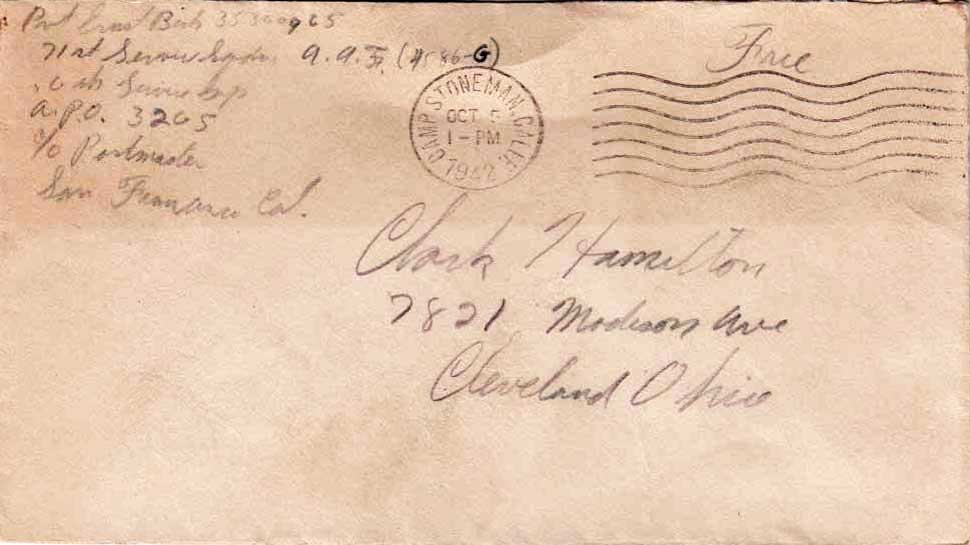 Pvt Ernst Bish
71st Service Sqdn. A.A.F. (4586-G)
Service Grp
A.P.O. 3205
c/o Postmaster
San Francisco Cal.
CAMP STONEMAN, CALIF.
OCT 5
1-PM
1942
Free
Clark Hamilton
7821 Madison Ave
Cleveland Ohio